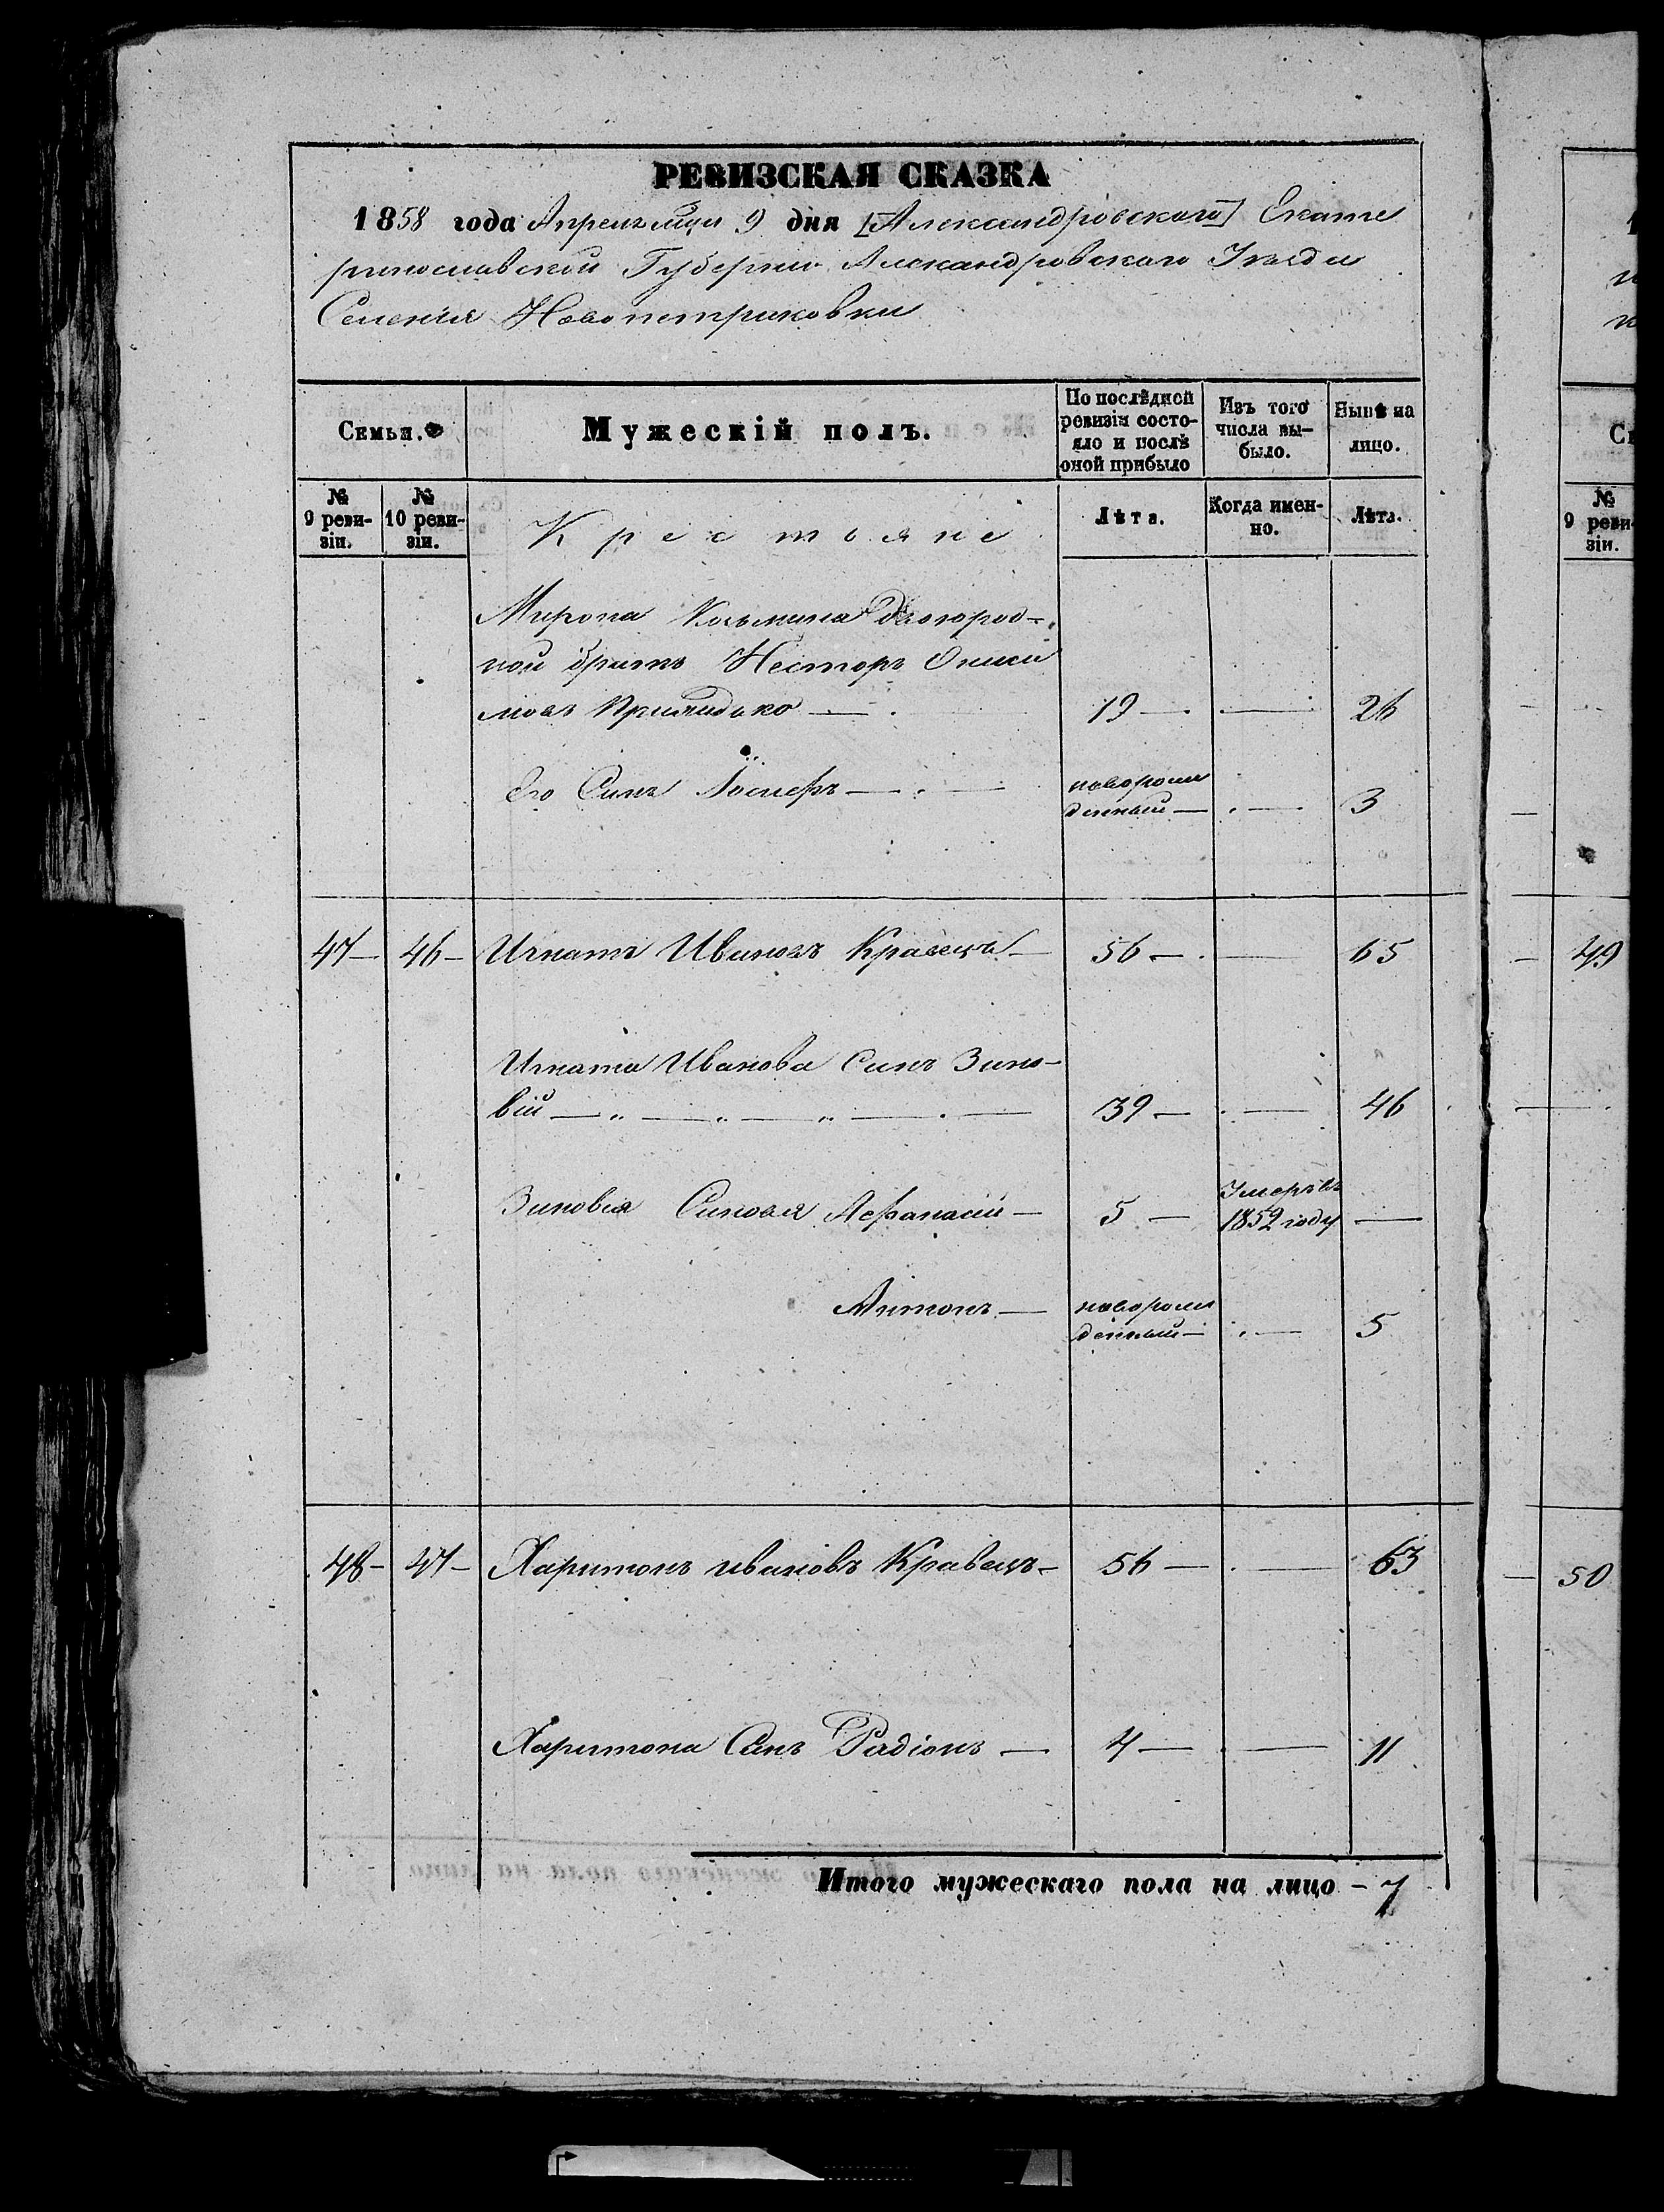 РЕВИЗСКАЯ СКАЗКА
1858 года Апреля мца 9 дня [Александровского] Екате
ринославской Губернии Алескандровского Уезда
Селения Новопетриковки
Семьи.
Мужескій полъ.
По послѣдней ревизіи состояло и послѣ оной прибыло
Изъ того числа выбыло.
Нынѣ на лицо.
№ 9 ревизіи.
№ 10 ревизіи.
Крестьяне
Лѣта.
Когда именно.
Лѣта.
Мирона Козьмина двоюрод-
ной братъ Несторъ Ониси
мовъ 19 — — 26
Его Синъ Іосифъ — новорож
денный — — 3
47 — 46 — Игнатъ Ивановъ Кравецъ — 56 — — 65
Игната Иванова Синъ Зино-
вій — 39 — — 46
Зиновія Синовя Афанасій — 5 — Умеръ въ
1852 году —
Антонъ — новорож
денный — — 5
48 — 47 — Харитонъ ивановъ Кравецъ — 56 — — 63
Харитона Синъ Радіонъ — 4 — — 11
Итого мужескаго пола на лицо — 7
№ 9 ревизіи.
49
50